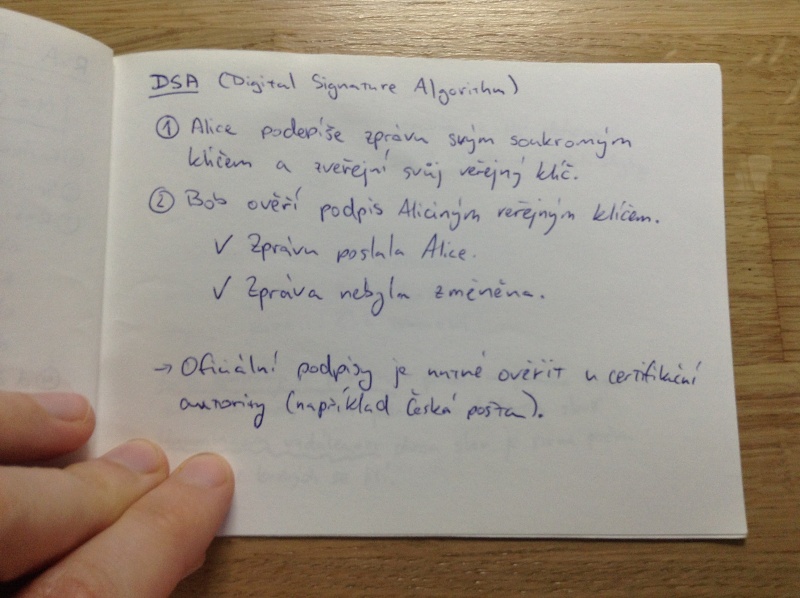 DSA (Digital Signature Algorithm)
① Alice podepíše zprávu svým soukromým
klíčem a zveřejní svůj veřejný klíč.
② Bob ověří podpis Aliciným veřejným klíčem.
✓ Zprávu poslala Alice.
✓ Zpráva nebyla změněna.
→ Oficiální podpisy je nutné ověřit u certifikační
autority (například Česká pošta).